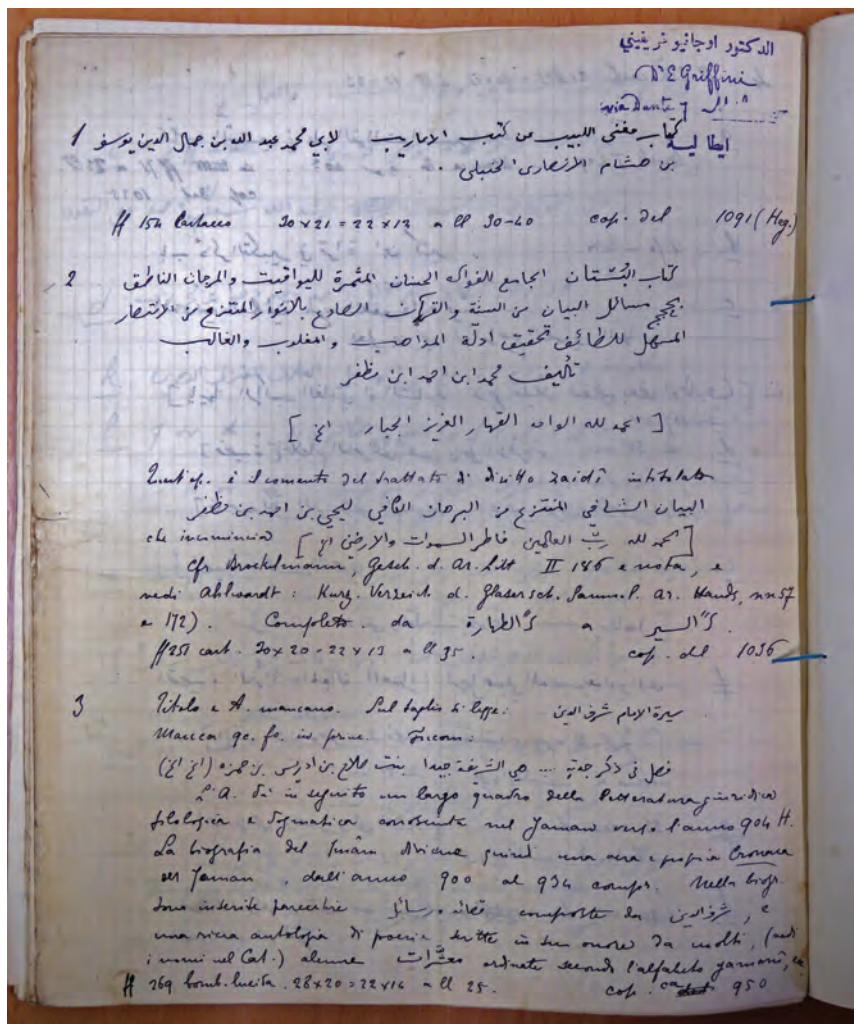 الدكتور اوجانيو غريفيني
Dr E Griffini
via Dante 7
ايطالية
1 كتاب مغنى اللبيب عن كتب الاعاريب لابي محمد عبد الله بن جمال الدين يوسف
بن هشام الانصارى الحنبلى .
ff 154 cartaceo 30×21 = 22×12 a ll 30-40 cop. del 1091 (Heg.)
2 كتاب البُسْتان الجامع للفواكه الحسان المثمرة لليواقيت والمرجان الناطق
بحجج مسائل البيان من السنة والقرآن الصادع بالانوار المنتزع من الانتصار
المسهل للطائف تحقيق ادلّة المذاهب والمغلوب والغالب
تأليف محمد ابن احمد ابن مظفر
[ الحمد لله الواحد القهار العزيز الجبار الخ ]
Quest'op. è il comento del trattato di diritto zaidî intitolato
البيان الشافي المنتزع من البرهان الكافي ليحيى بن احمد بن مظفر
che incomincia [الحمد لله ربّ العالمين فاطر السموات والارض الخ]
Cfr Brockelmann, Gesch. d. Ar. Litt II 186 e nota, e
vedi Ahlwardt: Kurz. Verzeich. d. Glaser'sch. Samml. ar. Hands, nn 57
e 172). Completo. da ك" الطهارة a ك" السير .
ff 251 cart. 30×20 = 22×13 a ll 35. cop. del 1036
3 Titolo e A. mancano. Sul taglio si legge: سيرة الامام شرف الدين .
Manca qc. fo. in princ. Incom:
فصل فى ذكر جدتِهِ .... هي الشريفة جيدا بنت صلاح بن ادريس بن حمزه (الخ الخ)
L'A. dà in seguito un largo quadro della letteratura giuridica
filologica e dogmatica conosciuta nel Jaman verso l'anno 904 H.
La biografia del Imâm diviene quindi una vera e propria Cronaca
del Jaman, dall'anno 900 al 934 compr. Nella biogr.
sono inserite parecchie قصائد ورسائل composte da شرف الدين, e
una ricca antologia di poesie scritte in suo onore da molti, (vedi
i nomi nel Cat.) alcune معشّرات ordinate secondo l'alfabeto
ff 269 bomb. lucida. 28×20 = 22×14 a ll 25. cop. ca 950